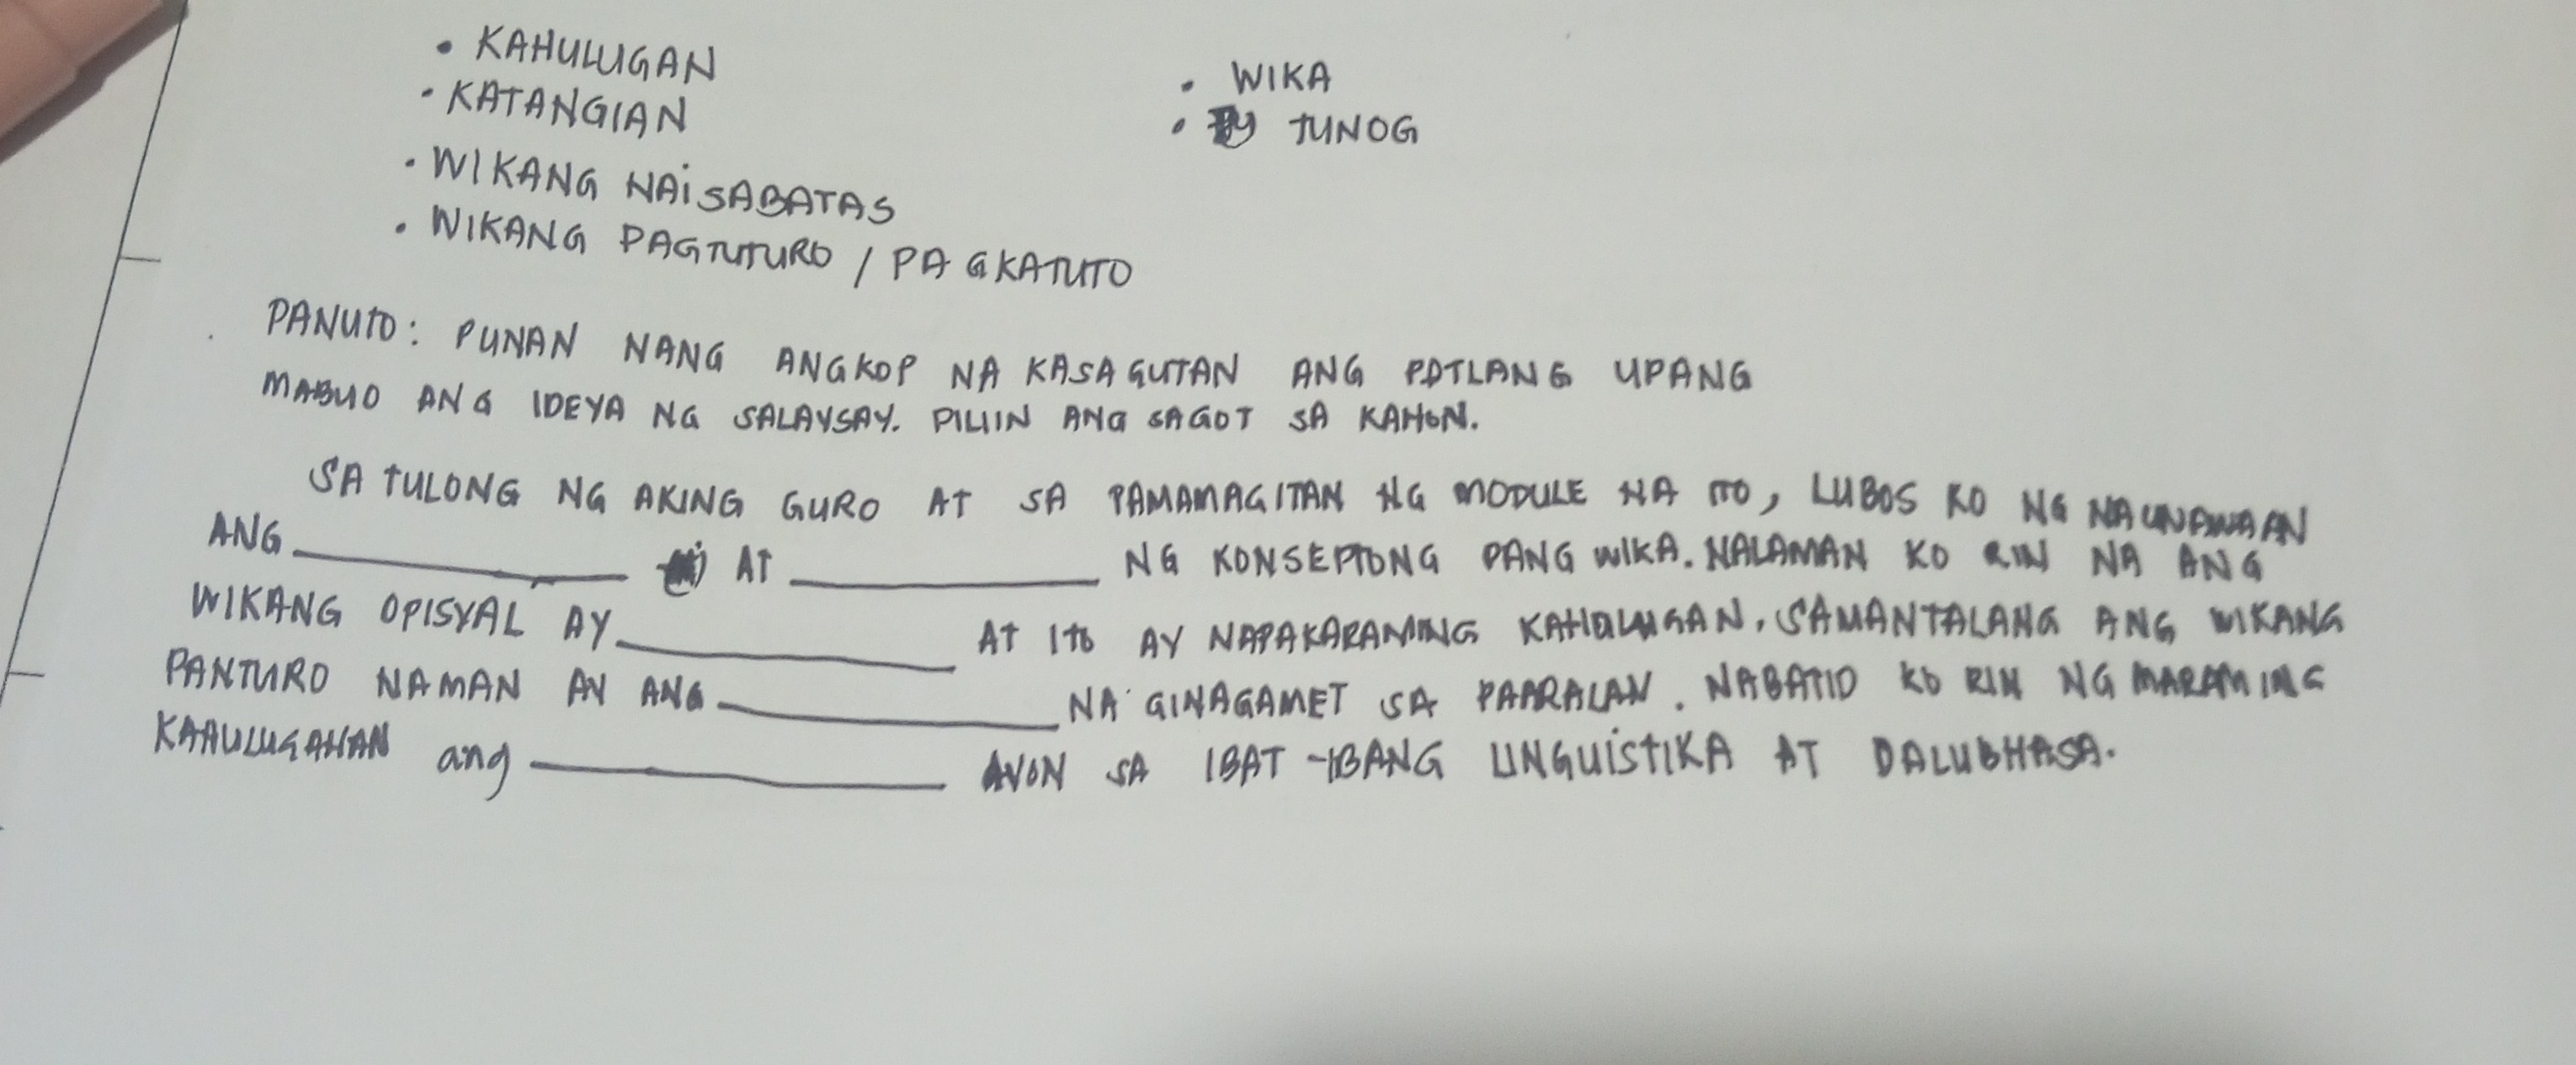 • KAHULUGAN
• KATANGIAN
• WIKANG NAISABATAS
• WIKANG PAGTUTURO / PAGKATUTO
• WIKA
• TUNOG
PANUTO: PUNAN NANG ANGKOP NA KASAGUTAN ANG PATLANG UPANG
MABUO ANG IDEYA NG SALAYSAY. PILIIN ANG SAGOT SA KAHON.
SA TULONG NG AKING GURO AT SA PAMAMAGITAN NG MODULE NA ITO, LUBOS KO NG NAUNAWAAN
ANG __________ AT __________ NG KONSEPTONG PANG WIKA. NALAMAN KO RIN NA ANG
WIKANG OPISYAL AY __________ AT ITO AY NAPAKARAMING KAHULUGAN. SAMANTALANG ANG WIKANG
PANTURO NAMAN AY ANG __________ NA GINAGAMET SA PAARALAN. NABATID KO RIN NG MARAMING
KAHULUGAHAN ang __________ AYON SA IBAT-IBANG LINGUISTIKA AT DALUBHASA.